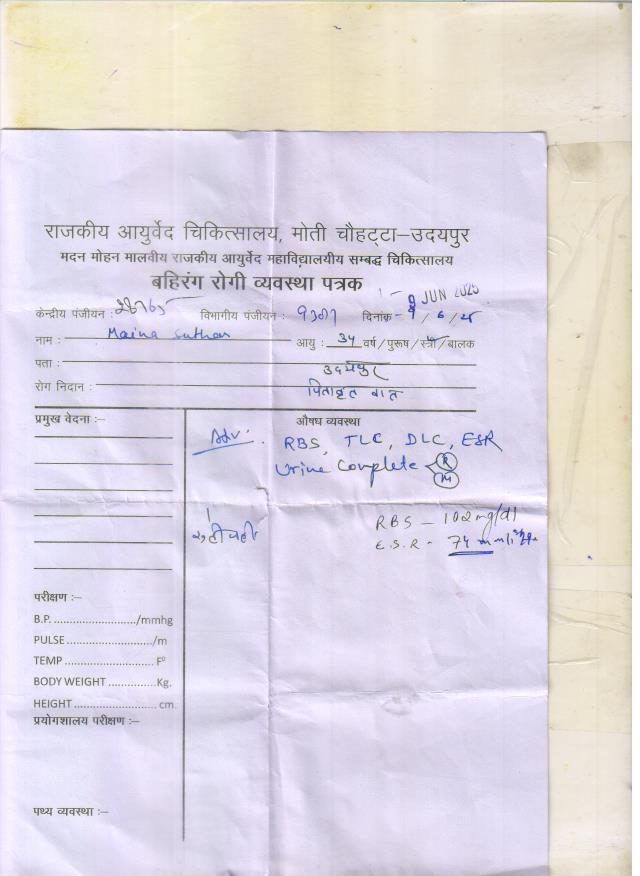 राजकीय आयुर्वेद चिकित्सालय, मोती चौहट्टा–उदयपुर
मदन मोहन मालवीय राजकीय आयुर्वेद महाविद्यालयीय सम्बद्ध चिकित्सालय
बहिरंग रोगी व्यवस्था पत्रक
9 JUN 2025
केन्द्रीय पंजीयन : विभागीय पंजीयन : दिनांक - 9/6/25
नाम : Maina Suthar आयु : 34 वर्ष/पुरूष/स्त्री/बालक
पता : उदयपुर
रोग निदान : पितावृत वात
प्रमुख वेदना :– औषध व्यवस्था
Adv: RBS, TLC, DLC, ESR
Urine Complete R
M
RBS – 102 mg/dl
E.S.R - 74 mm/
परीक्षण :–
B.P. ......................../mmhg
PULSE ........................./m
TEMP ........................... F⁰
BODY WEIGHT ..............Kg.
HEIGHT ......................... cm.
प्रयोगशालय परीक्षण :–
पथ्य व्यवस्था :–